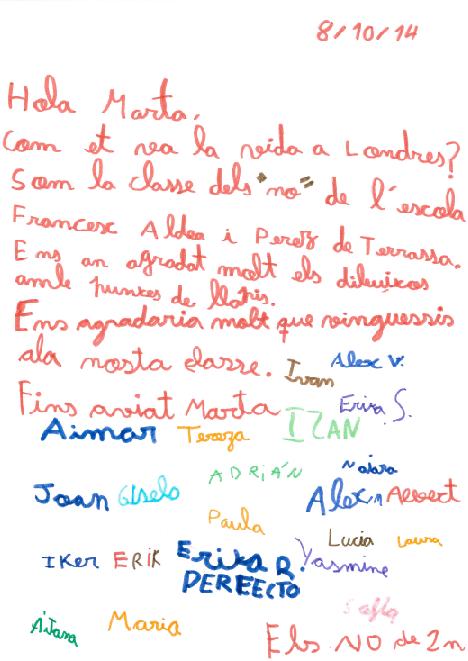 8/10/14
Hola Marta,
Com et vea la vida a Londres?
Som la classe dels "no" de l'escola
Francesc Aldea i Perez de Terrassa.
Ens an agradat molt els dibuixos
amb puntes de llapis.
Ens agradaria molt que vinguessis
ala nosta classe. Ivan Alex V.
Fins aviat Marta IZAN Erika S.
Aimar Tereza
ADRIÁN Naiara
Joan Gisela Alex M Albert
Paula Lucia Laura
IKer ERIK Erika R. Yasmine
PERFECTO
Aitana Maria
Els NO de 2n